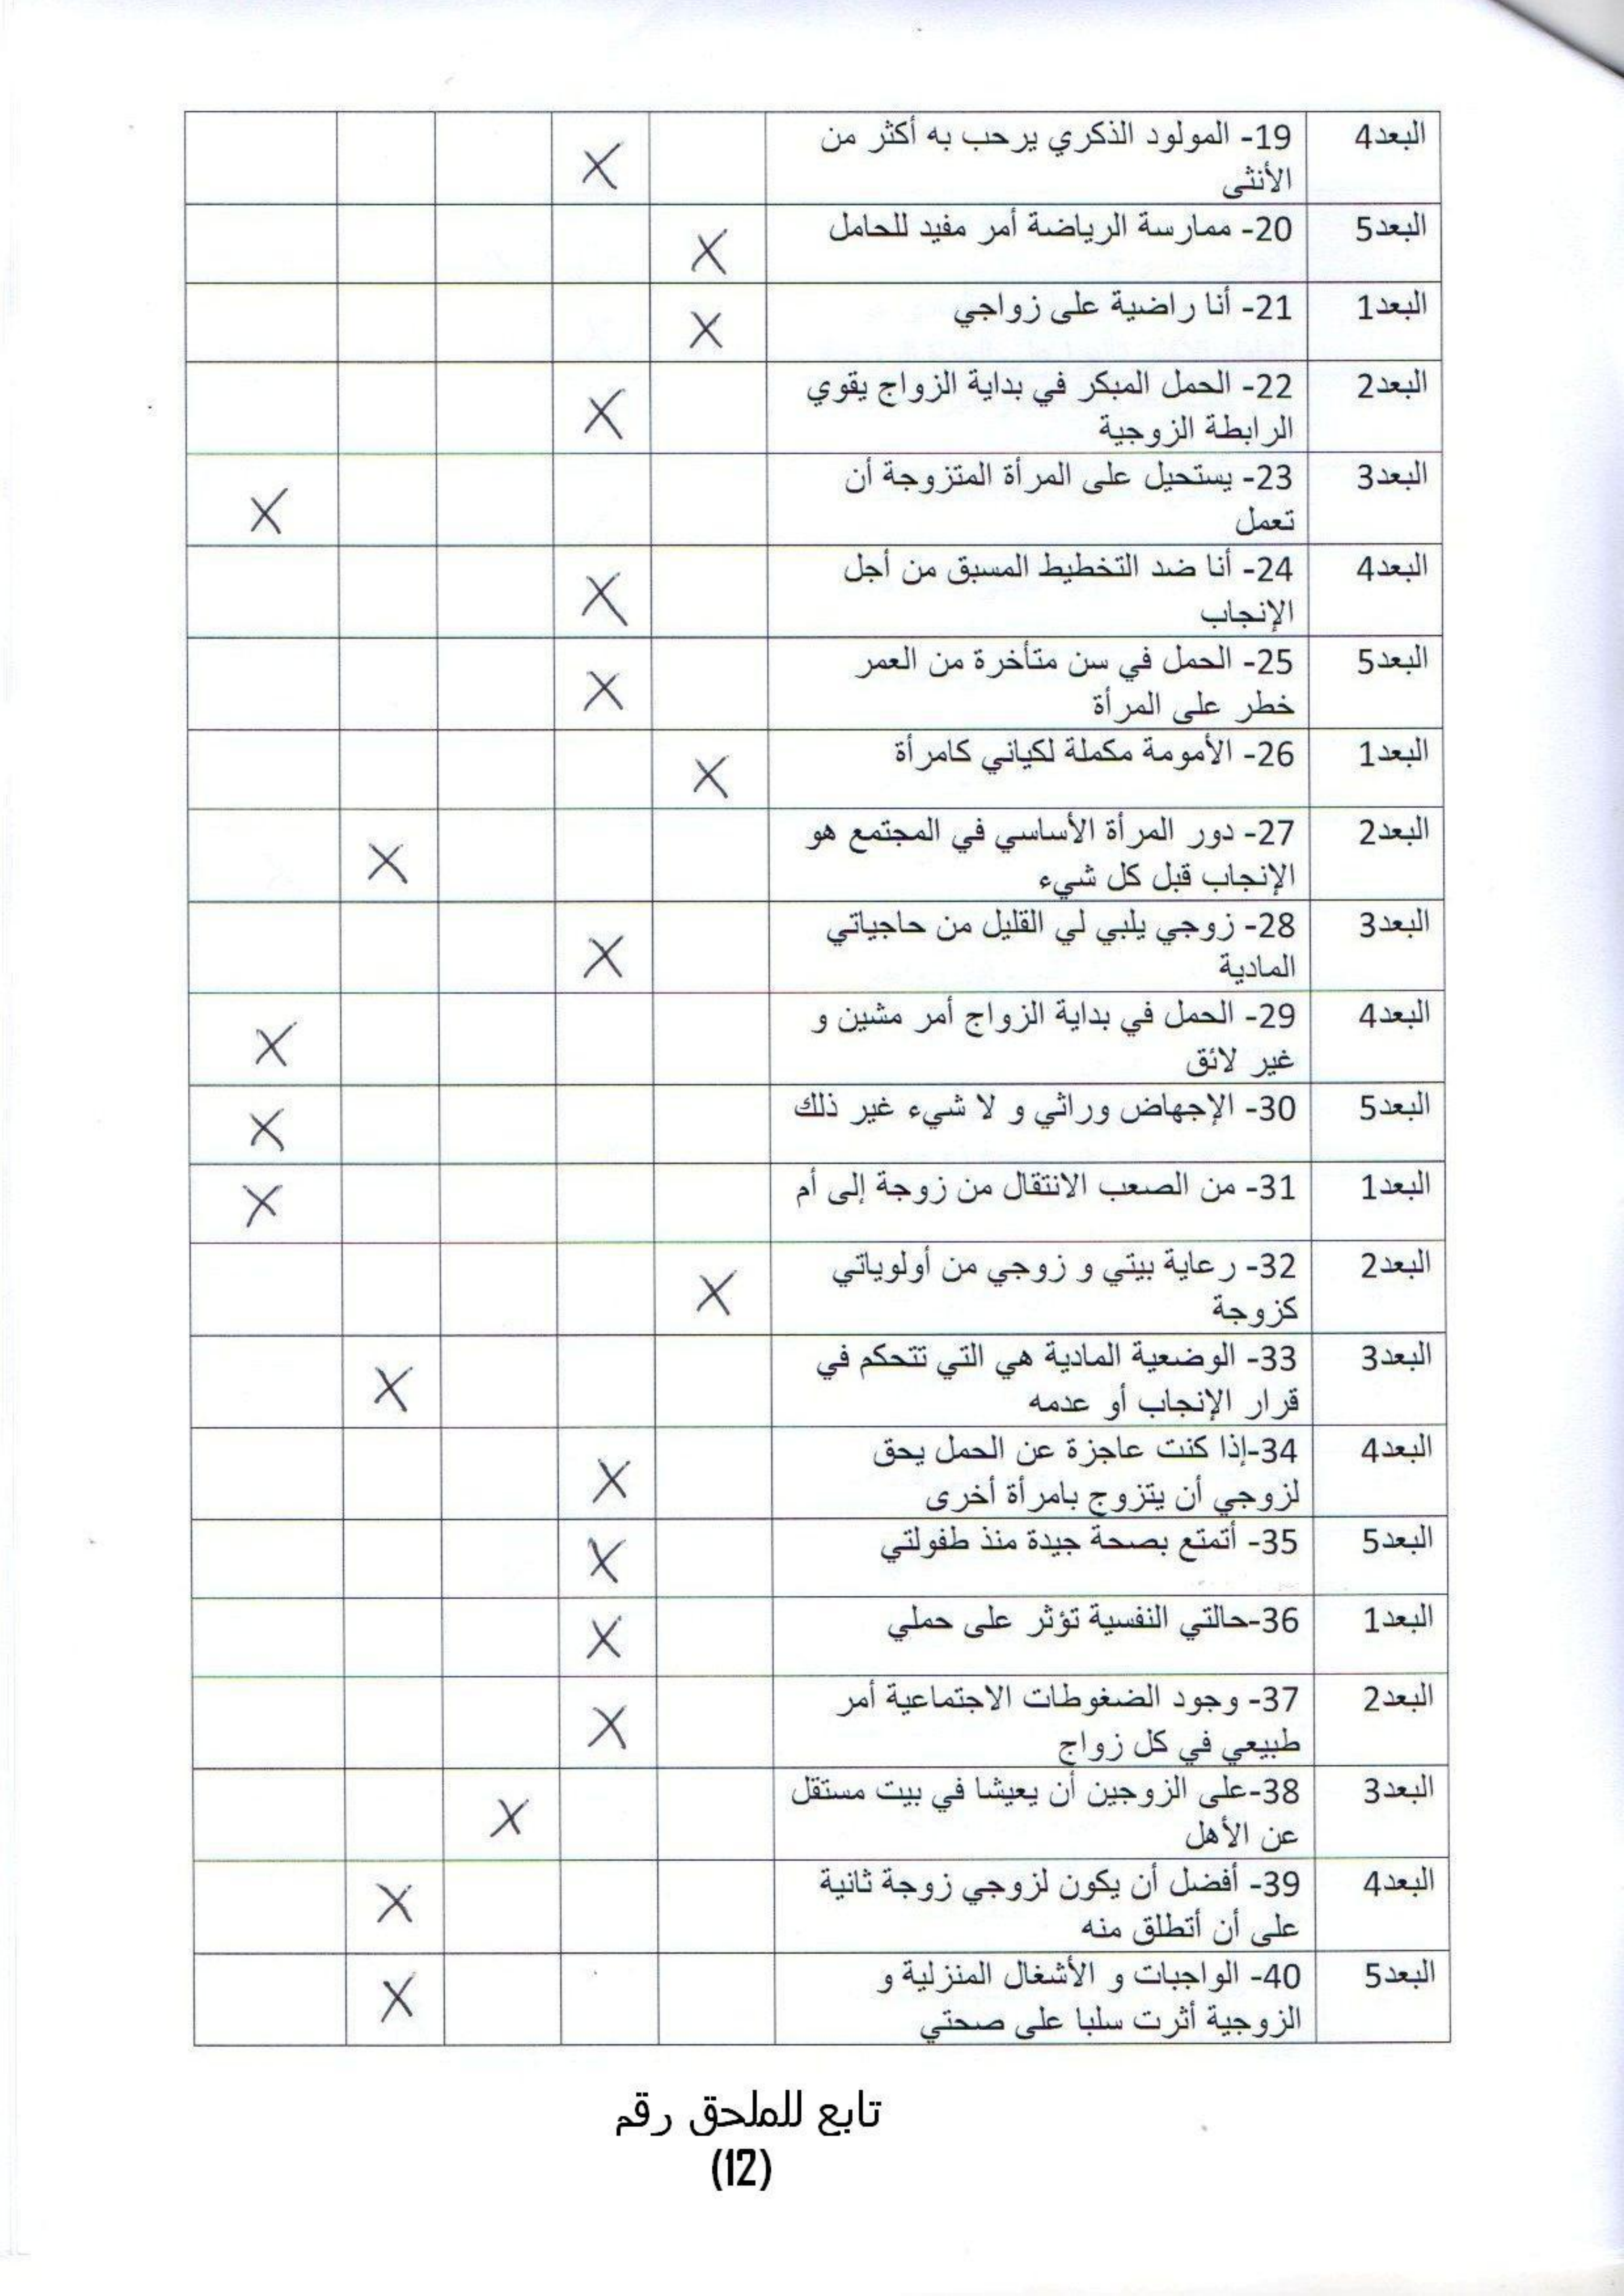 البعد4 19- المولود الذكري يرحب به أكثر من
الأنثى X
البعد5 20- ممارسة الرياضة أمر مفيد للحامل X
البعد1 21- أنا راضية على زواجي X
البعد2 22- الحمل المبكر في بداية الزواج يقوي
الرابطة الزوجية X
البعد3 23- يستحيل على المرأة المتزوجة أن
تعمل X
البعد4 24- أنا ضد التخطيط المسبق من أجل
الإنجاب X
البعد5 25- الحمل في سن متأخرة من العمر
خطر على المرأة X
البعد1 26- الأمومة مكملة لكياني كامرأة X
البعد2 27- دور المرأة الأساسي في المجتمع هو
الإنجاب قبل كل شيء X
البعد3 28- زوجي يلبي لي القليل من حاجياتي
المادية X
البعد4 29- الحمل في بداية الزواج أمر مشين و
غير لائق X
البعد5 30- الإجهاض وراثي و لا شيء غير ذلك X
البعد1 31- من الصعب الانتقال من زوجة إلى أم X
البعد2 32- رعاية بيتي و زوجي من أولوياتي
كزوجة X
البعد3 33- الوضعية المادية هي التي تتحكم في
قرار الإنجاب أو عدمه X
البعد4 34-إذا كنت عاجزة عن الحمل يحق
لزوجي أن يتزوج بامرأة أخرى X
البعد5 35- أتمتع بصحة جيدة منذ طفولتي X
البعد1 36-حالتي النفسية تؤثر على حملي X
البعد2 37- وجود الضغوطات الاجتماعية أمر
طبيعي في كل زواج X
البعد3 38-على الزوجين أن يعيشا في بيت مستقل
عن الأهل X
البعد4 39- أفضل أن يكون لزوجي زوجة ثانية
على أن أتطلق منه X
البعد5 40- الواجبات و الأشغال المنزلية و
الزوجية أثرت سلبا على صحتي X
تابع للملحق رقم
(12)